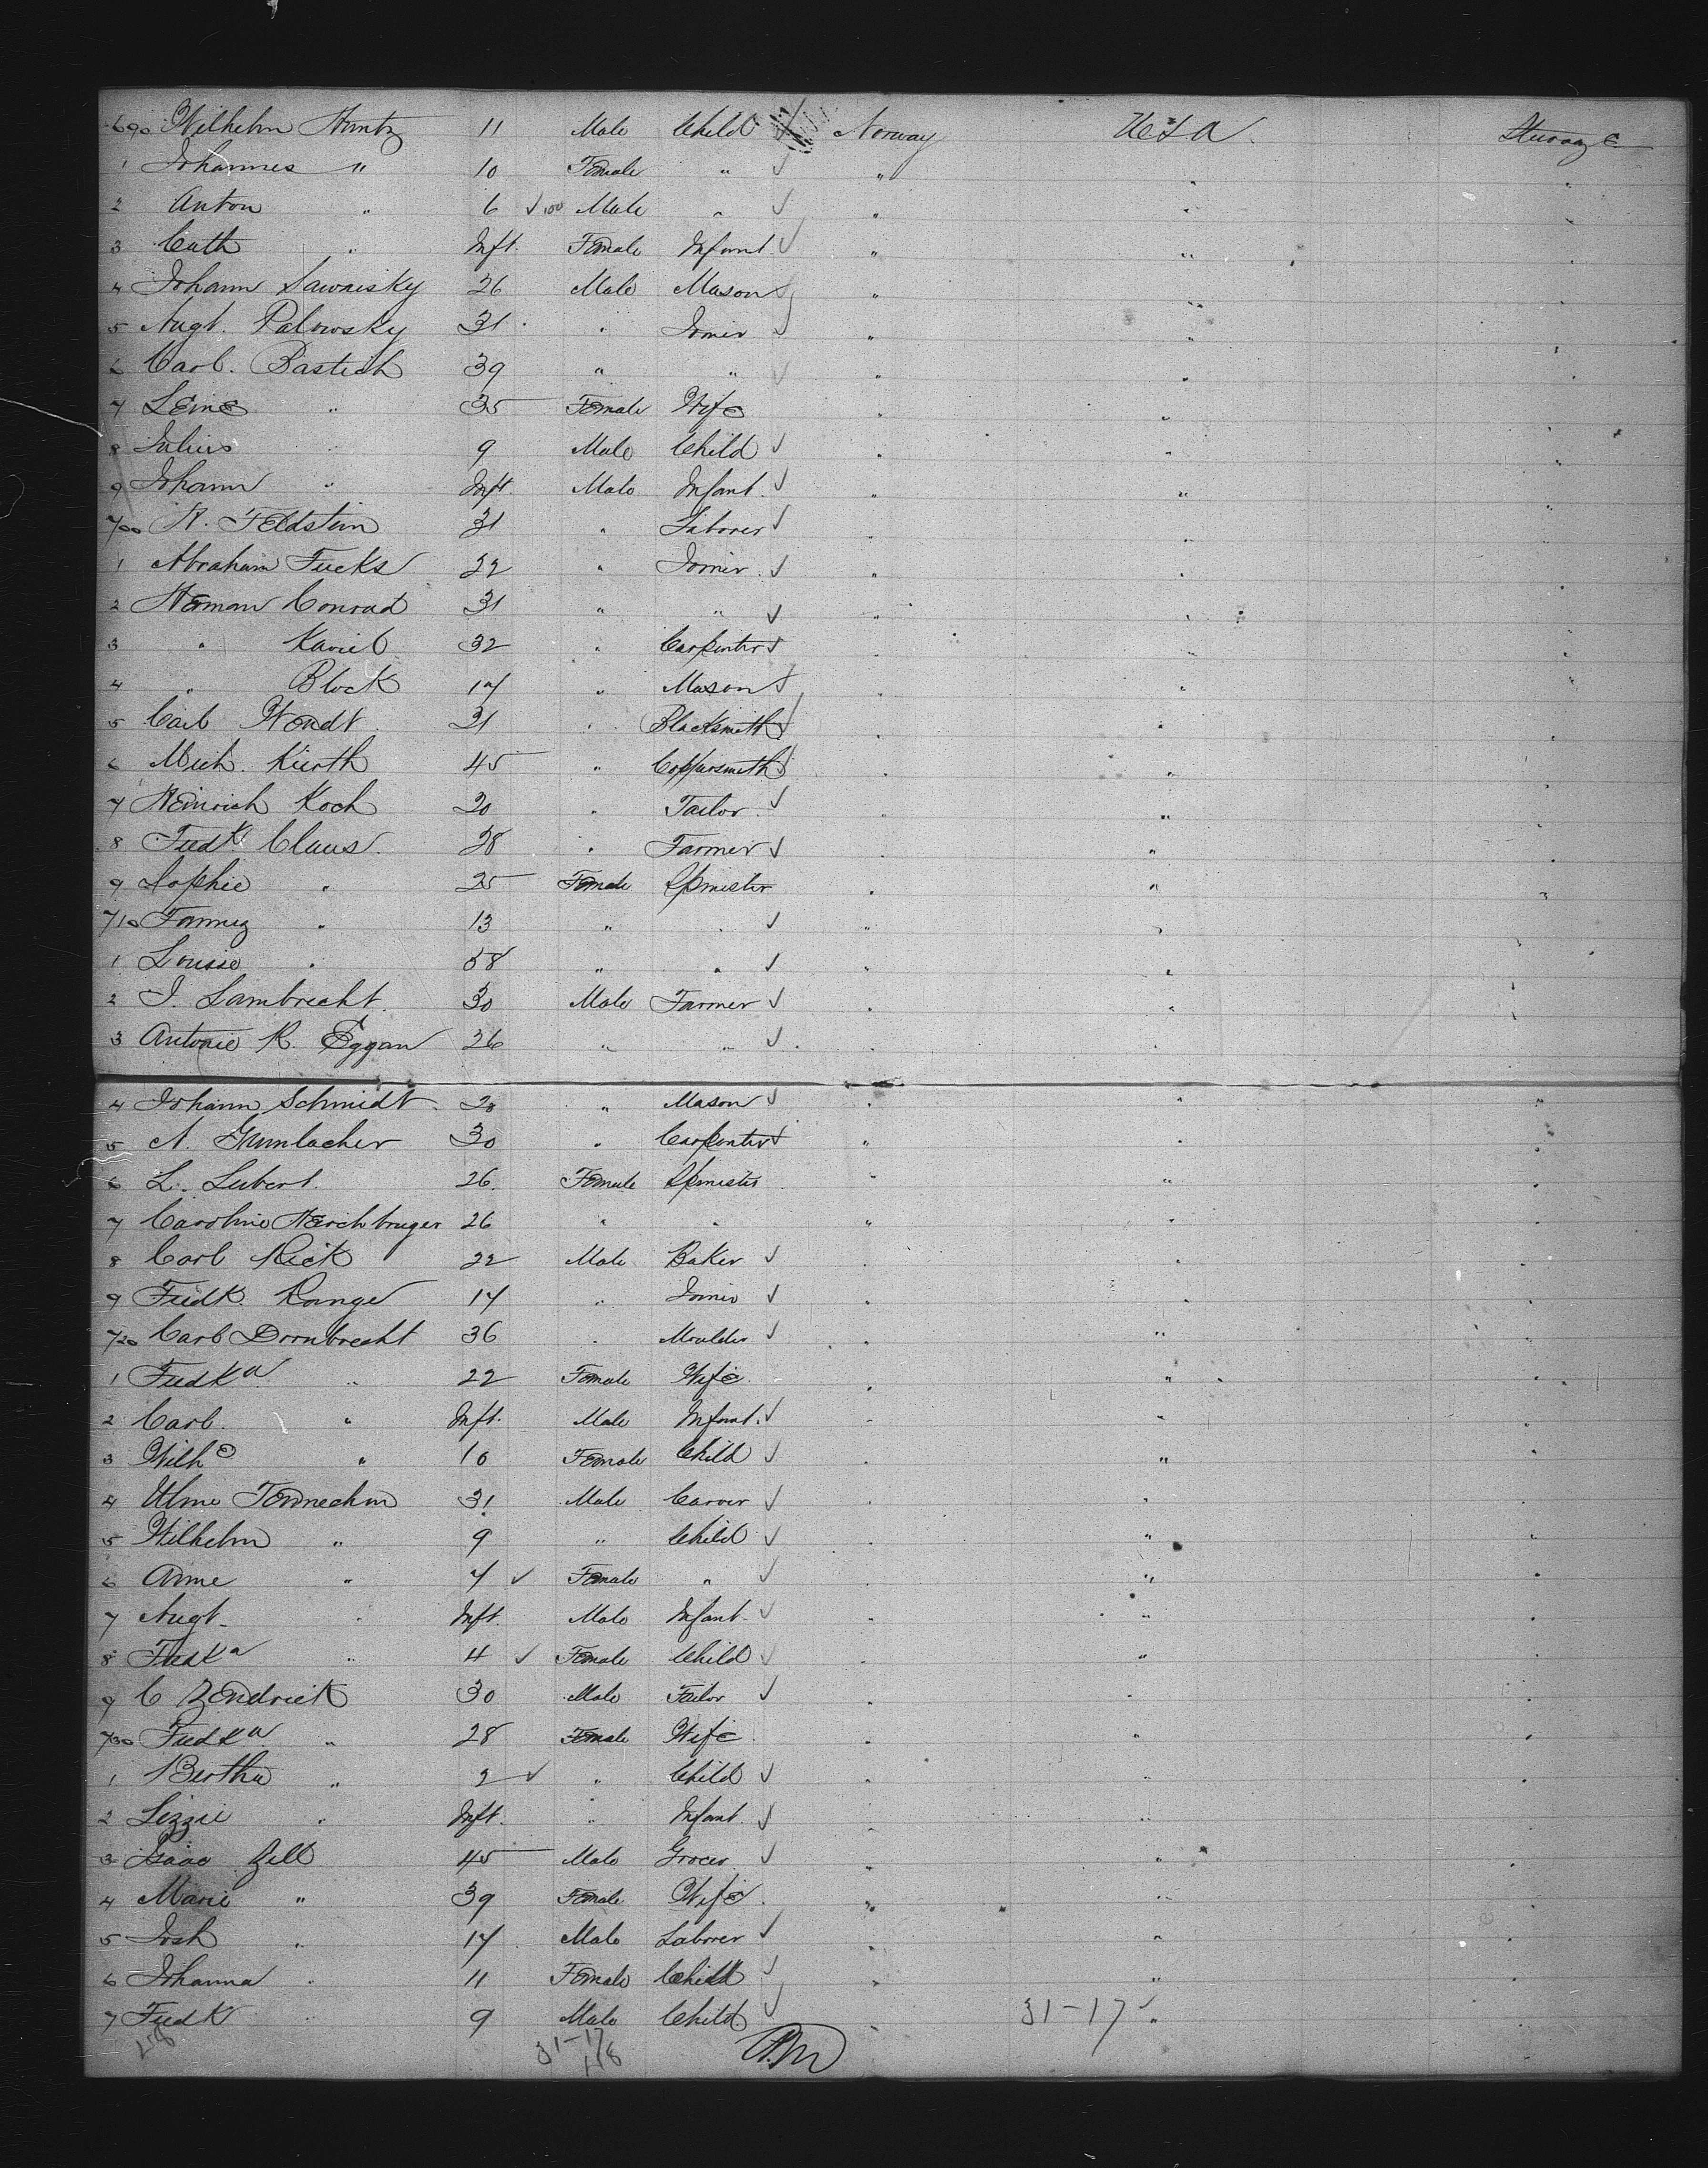 690 Wilhelm Kuntz 11 Male Child Norway U S A Steerage
1 Johannes " 10 Female " " " "
2 Anton " 6 100 Male " " " "
3 Cath " Inft. Female Infant " " "
4 Johann Sawaisky 26 Male Mason " " "
5 Augt. Palowsky 31 " Joiner " " "
6 Carl. Bastich 39 " " " " "
7 Leine " 35 Female Wife " " "
8 Julius " 9 Male Child " " "
9 Johann " Inft. Male Infant " " "
700 A. Feldstein 31 " Laborer " " "
1 Abraham Fucks 22 " Joiner " " "
2 Herman Conrad 31 " " " " "
3 " 32 " Carpenter " " "
4 " Block 17 " Mason " " "
5 Carl Wendt 31 " Blacksmith " " "
6 Mich. Kurth 45 " Coppersmith " " "
7 Heinrich Koch 20 " Tailor " " "
8 Fredk. Claus 28 " Farmer " " "
9 Sophie " 25 Female Spinster " " "
710 " 13 " " " " "
1 Louise " 58 " " " " "
2 J. Lambrecht 30 Male Farmer " " "
3 Antonie K. Eggan 26 " " " " "
4 Johann Schmidt 28 " Mason " " "
5 A. Grumlacher 30 " Carpenter " " "
6 L. Lubert. 26 Female Spinster " " "
7 Caroline 26 " " " " "
8 Carl Rick 22 Male Baker " " "
9 Fredk. Range 17 " Joiner " " "
720 Carl Dornbrecht 36 " Moulder " " "
1 Fredka " 22 Female Wife " " "
2 Carl " Inft. Male Infant " " "
3 Wilhe " 10 Female Child " " "
4 31 Male Carver " " "
5 Wilhelm " 9 " Child " " "
6 Anne " 7 Female " " " "
7 Augt. " Inft. Male Infant " " "
8 Fredka " 4 Female Child " " "
9 C Zendrick 30 Male Tailor " " "
730 Fredka " 28 Female Wife " " "
1 Bertha " 2 " Child " " "
2 Lizzie " Inft. " Infant " " "
3 Isaac Zell 45 Male Grocer " " "
4 Marie " 39 Female Wife " " "
5 Josh " 17 Male Laborer " " "
6 Johanna " 11 Female Child " " "
7 Fredk " 9 Male Child " 31-17 " "
48 31-17
48